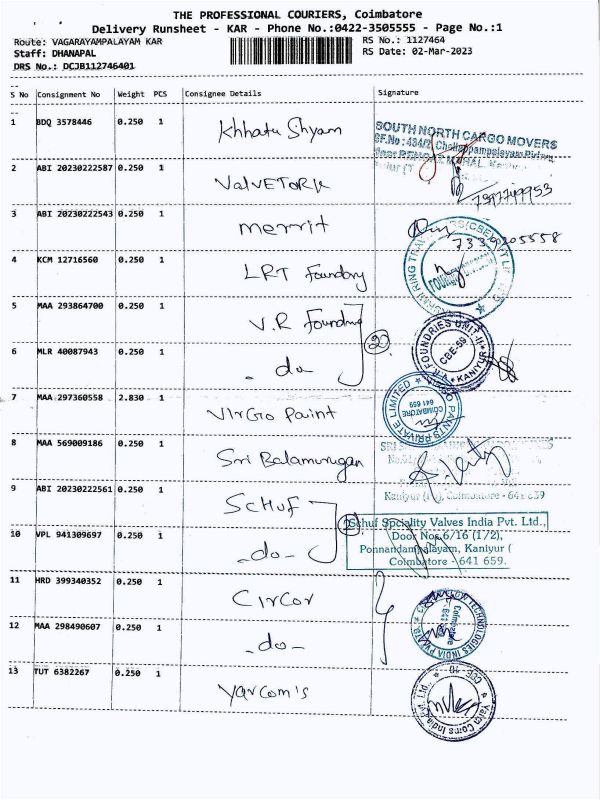 THE PROFESSIONAL COURIERS, Coimbatore
Delivery Runsheet - KAR - Phone No.:0422-3505555 - Page No.:1
Route: VAGARAYAMPALAYAM KAR
RS No.: 1127464
Staff: DHANAPAL
RS Date: 02-Mar-2023
DRS No.: DCJB112746401
S No Consignment No Weight PCS Consignee Details Signature
1 BDQ 3578446 0.250 1 Khhatu Shyam
SOUTH NORTH CARGO MOVERS
SF.No: 434/2, Chellappampalayam
2 ABI 20230222587 0.250 1 ValVETORK
7397749953
3 ABI 20230222543 0.250 1 merrit
7339205558
4 KCM 12716560 0.250 1 LRT Foundry
5 MAA 293864700 0.250 1 V.R Foundry
6 MLR 40087943 0.250 1 - do
2
FOUNDRIES UNIT II
CBE-59
KANIYUR
7 MAA 297360558 2.830 1 VIrGo Paint
PAINTS PRIVATE LIMITED
COIMBATORE
641 659
8 MAA 569009186 0.250 1 Sri Balamurugan
Kaniyur Coimbatore - 641 659
9 ABI 20230222561 0.250 1 SCHUF
10 VPL 941309697 0.250 1 -do-
2
Schuf Spciality Valves India Pvt. Ltd.,
Door Nos.6/16 (1/2),
Ponnandampalayam, Kaniyur (
Coimbatore - 641 659.
11 HRD 399340352 0.250 1 CIrCor
12 MAA 298490607 0.250 1 -do-
TECHNOLOGIES INDIA
Coimbatore
13 TUT 6382267 0.250 1 Yarcom's
Coims India Pvt. Ltd.